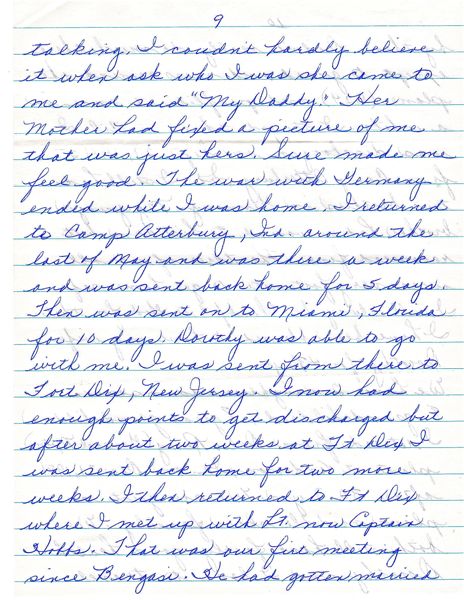 9
talking. I couldn't hardly believe
it when ask who I was she came to
me and said "My Daddy." Her
Mother had fixed a picture of me
that was just hers. Sure made me
feel good. The war with Germany
ended while I was home. I returned
to Camp Atterbury, Ind. around the
last of May and was there a week
and was sent back home for 5 days.
Then was sent on to Miami, Florida
for 10 days. Dorothy was able to go
with me. I was sent from there to
Fort Dix, New Jersey. I now had
enough points to get discharged but
after about two weeks at Ft Dix I
was sent back home for two more
weeks. I then returned to Ft Dix
where I met up with Lt. now Captain
Hobbs. That was our firt meeting
since Bengasi. He had gotten married